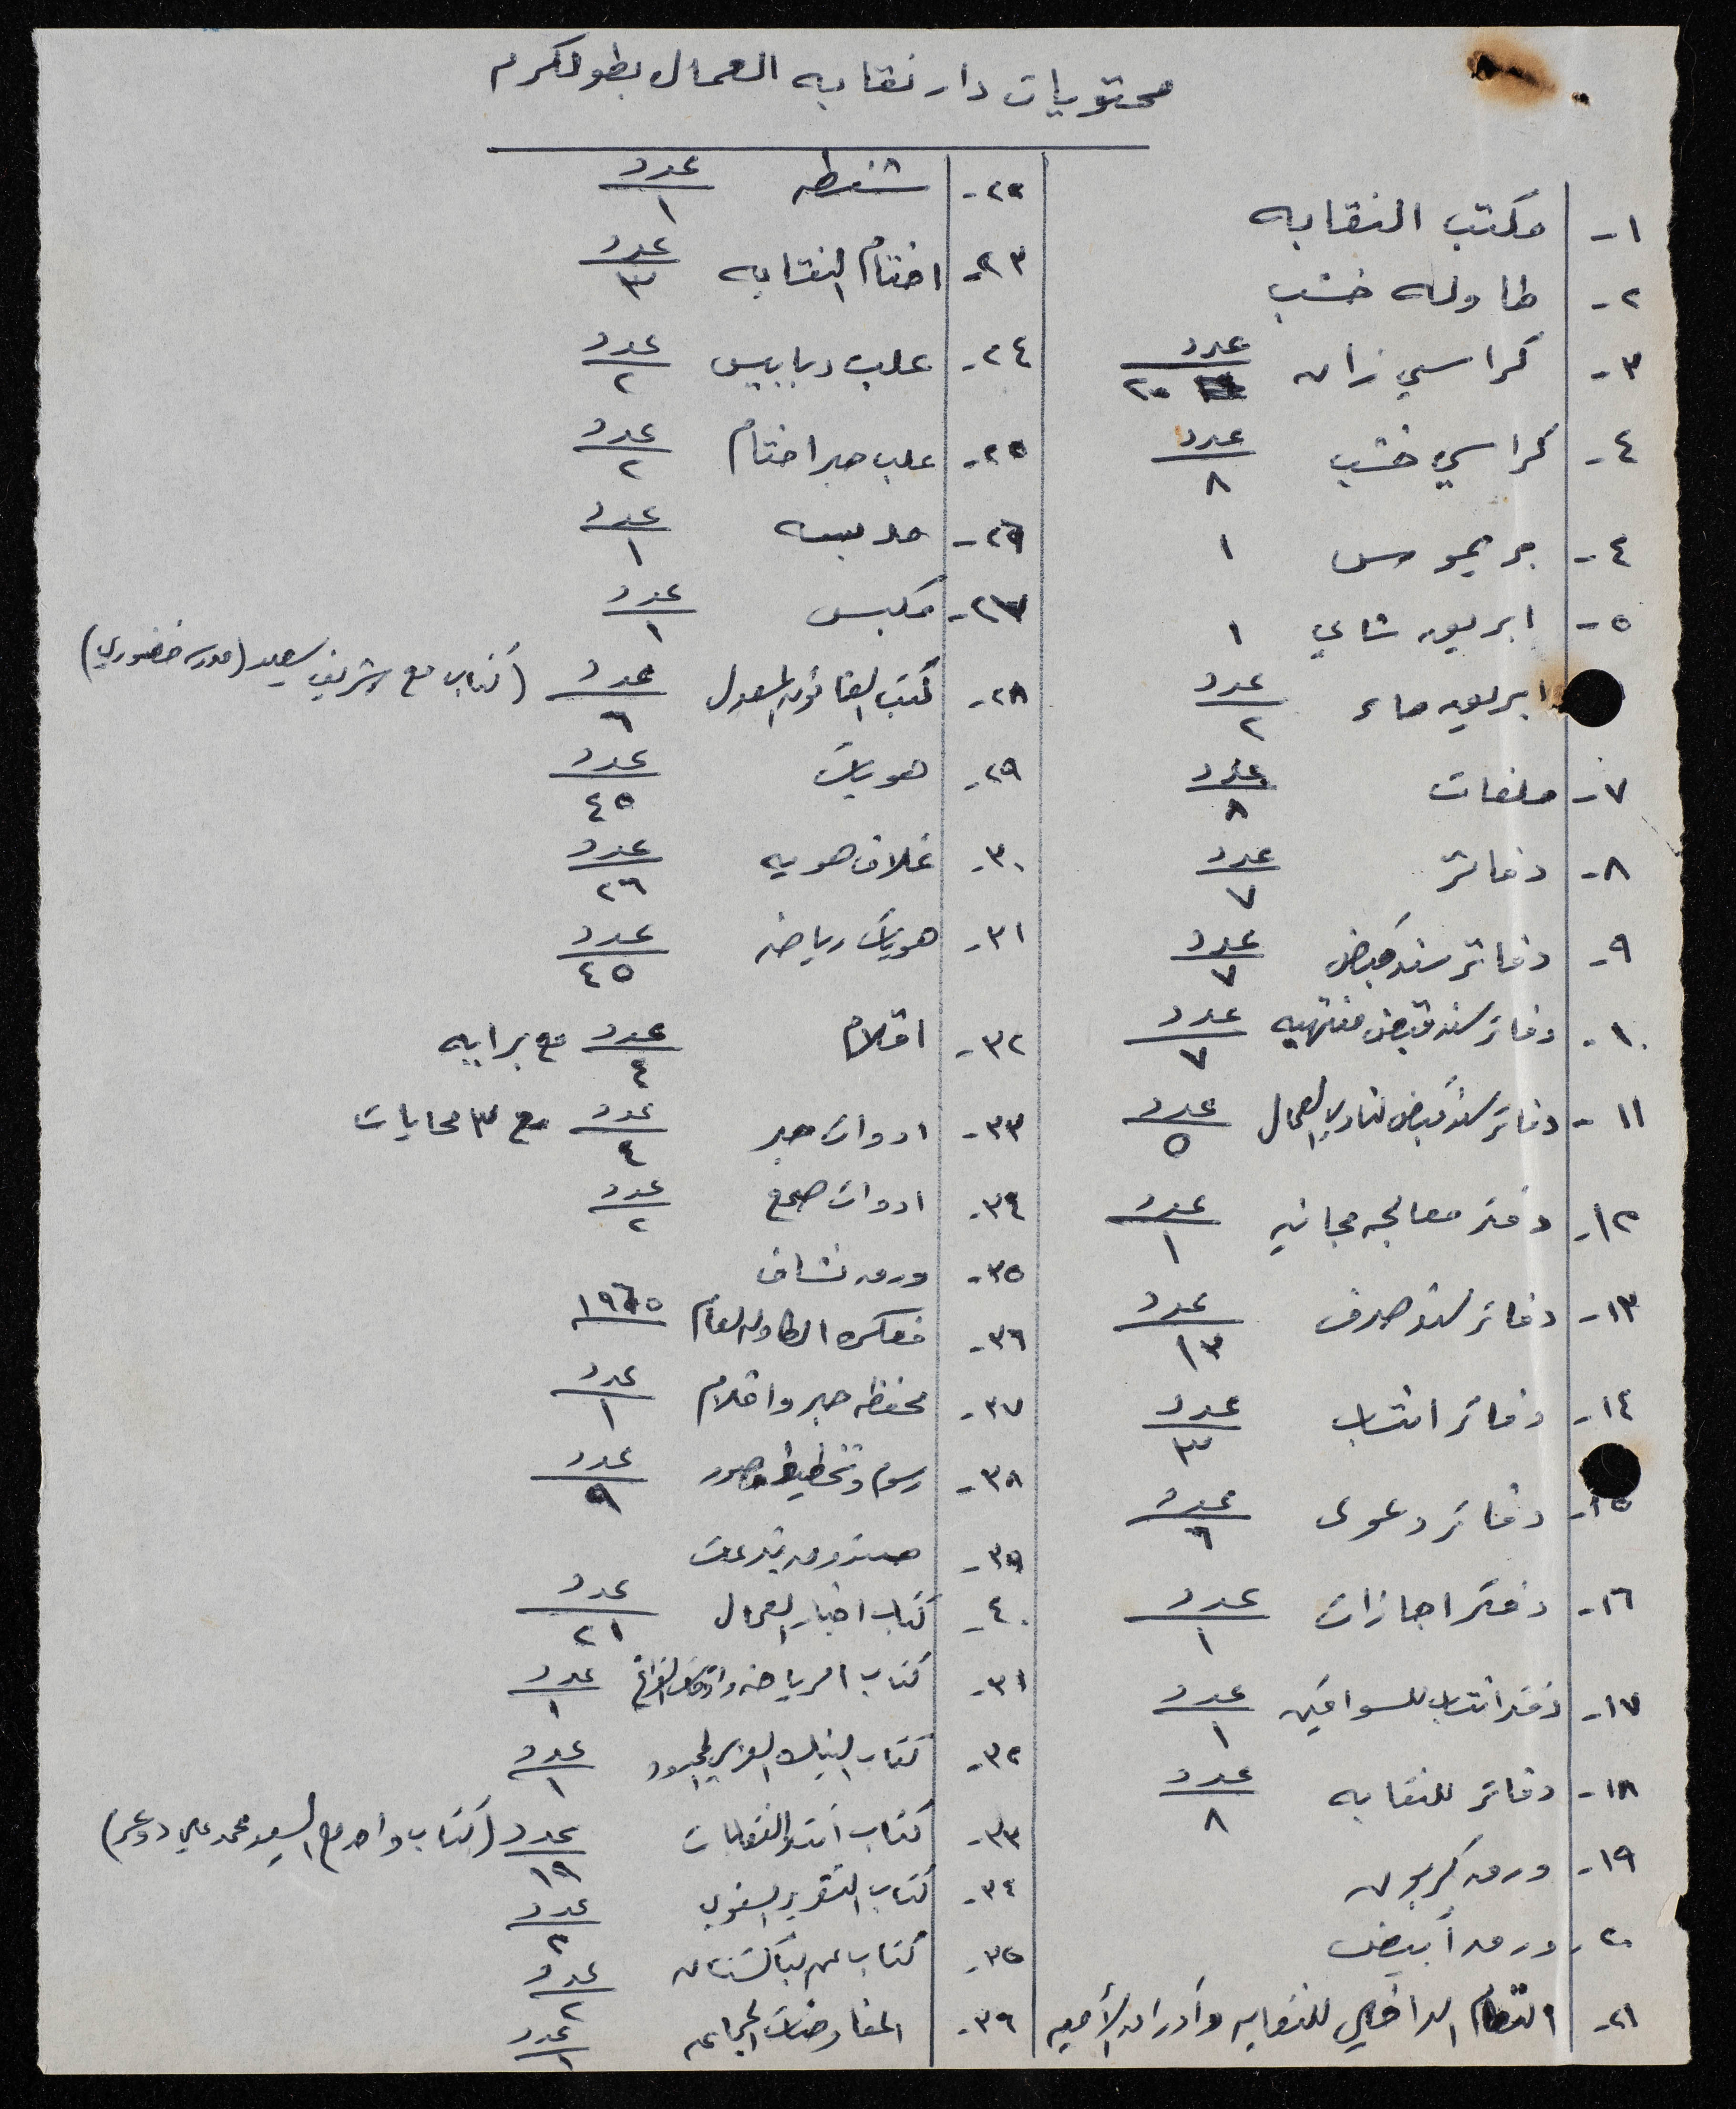 محتويات دار نقابه العمال بطولكرم
١- مكتب النقابه
٢- طاوله خشب
٣- كراسي زان عدد ٢٠
٤- كراسي خشب عدد ٨
٤- بريموس ١
٥- ابريق شاي ١
ابريق ماء عدد ٢
٧- ملفات عدد ٨
٨- دفاتر عدد ٧
٩- دفاتر سند قبض عدد ٧
١٠- دفاتر سند قبض منتهيه عدد ٧
١١- دفاتر سند قبض لنادي العمال عدد ٥
١٢- دفتر معالجه مجانيه عدد ١
١٣- دفاتر سند صرف عدد ١٣
١٤- دفاتر انتساب عدد ٣
١٥- دفاتر دعوى عدد ٦
١٦- دفتر اجازات عدد ١
١٧- دفتر انتساب للسواقين عدد ١
١٨- دفاتر للنقابه عدد ٨
١٩- ورق كربون
٢٠- ورق أبيض
٢١- النظام الداخلي للنقابه وأوراق الأميه
٢٢- شنطه عدد ١
٢٣- اختام النقابه عدد ٣
٢٤- علب دبابيس عدد ٢
٢٥- علب حبر اختام عدد ٢
٢٦- عدد ١
٢٧- مكبس عدد ١
٢٨- كتب القانون المعدل عدد ٦ (كتاب مع شريف سعيد (مدرسه خضوري)
٢٩- هويات عدد ٤٥
٣٠- غلاف هويه عدد ٢٦
٣١- هويات رياضه عدد ٤٥
٣٢- اقلام عدد ٤ مع برايه
٣٣- ادوات حبر عدد ٤ مع ٣ محايات
٣٤- ادوات صمغ عدد ٢
٣٥- ورق نشاف
٣٦- مفكره الطاوله لعام ١٩٦٥
٣٧- محفظه حبر واقلام عدد ١
٣٨- رسوم وتخطيط وصور عدد ٩
٣٩- صندوق تبرعات
٤٠- كتاب اخبار العمال عدد ٢١
٣١- كتاب الرياضه واوقات الفراغ عدد ١
٣٢- كتاب البنك العربي عدد ١
٣٣- كتاب أنت والنقابات عدد ١٩ (كتاب واحد مع السيد محمد علي دوعر)
٣٤- كتاب التقرير السنوي عدد ٢
٣٥- كتاب عن باكستان عدد ٢
٣٦- المفاوضات الجماعيه عدد ١